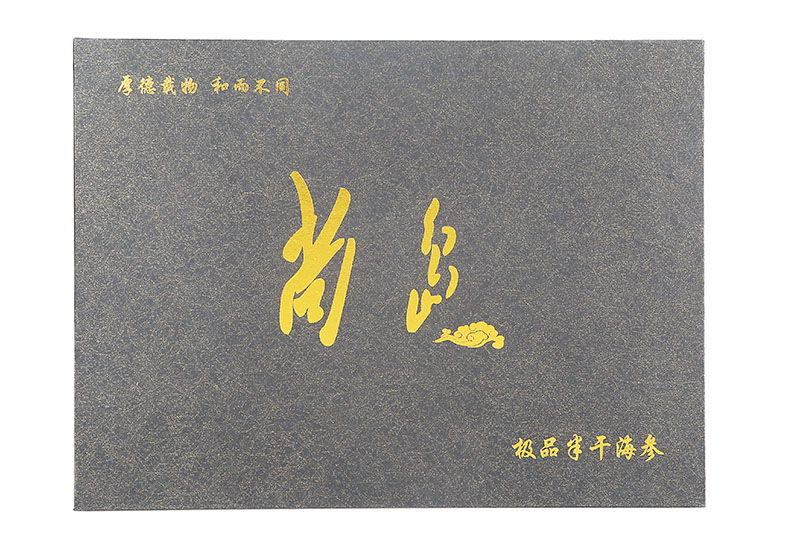 厚德载物 和而不同
尚岛
极品半干海参